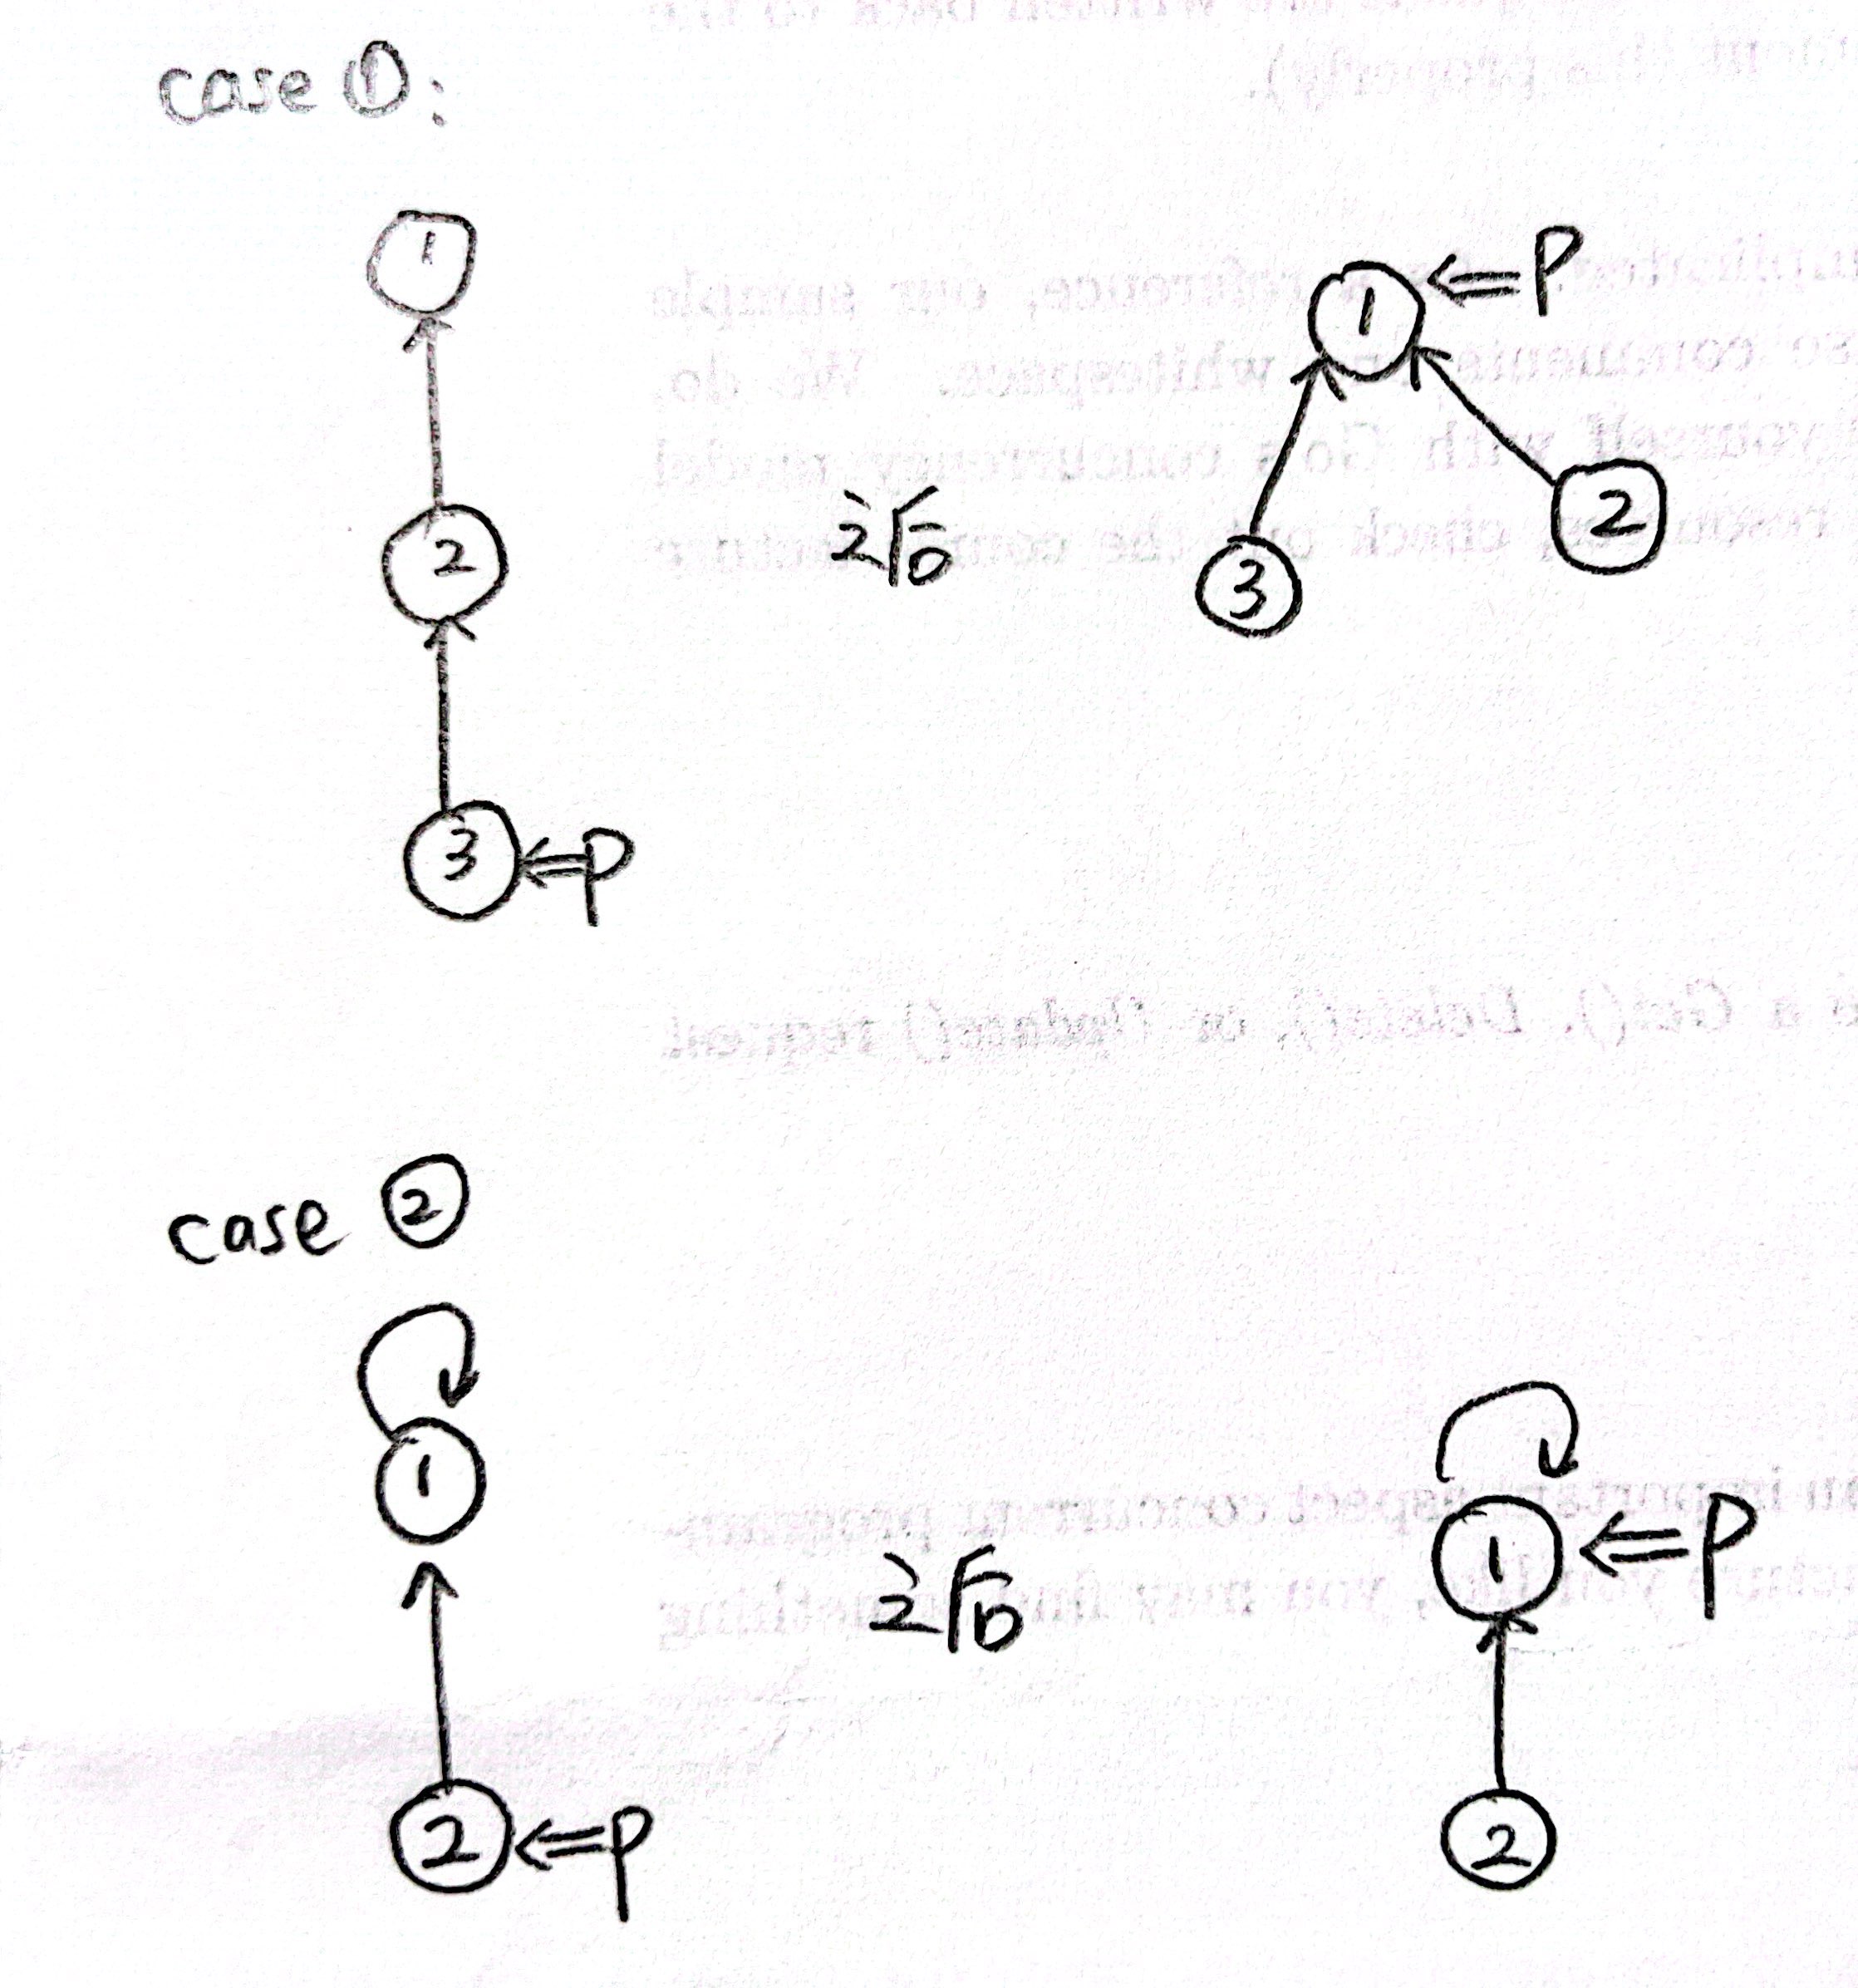 case ①:
1
2
3 ⇐ P
之后
1 ⇐ P
3
2
case ②
1
2 ⇐ P
之后
1 ⇐ P
2